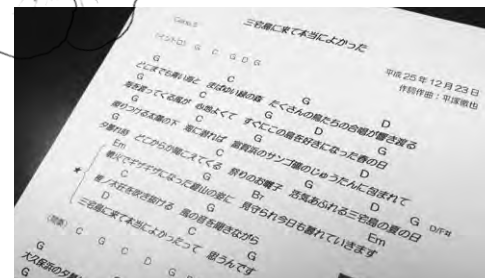 Capo.2 三宅島に来て本当によかった
平成25年12月23日
作詞作曲：平塚徹也
(イントロ) G C G D G
G C G D
どこまでも青い海と まばゆい緑の森 たくさんの鳥たちの合唱が響き渡る
G C G D G
海を渡ってくる風が 心地よくて すぐにこの島を好きになった春の日
G C G D
照りつける太陽の下 海に潜れば 富賀浜のサンゴ礁のじゅうたんに包まれて
G C G D G D/F#
夕暮れ時 どこからか聞こえてくる 祭りのお囃子 活気あふれる三宅島の夏の日
Em C G B7 Em
★ 噴火でギザギザになった雄山の姿に 見守られ今日も暮れていきます
C G
椎ノ木荘を吹き抜ける 風の音を聞きながら
D C G
三宅島に来て本当によかったって 思うんです
(間奏) C G C D G
G
大久保浜の夕